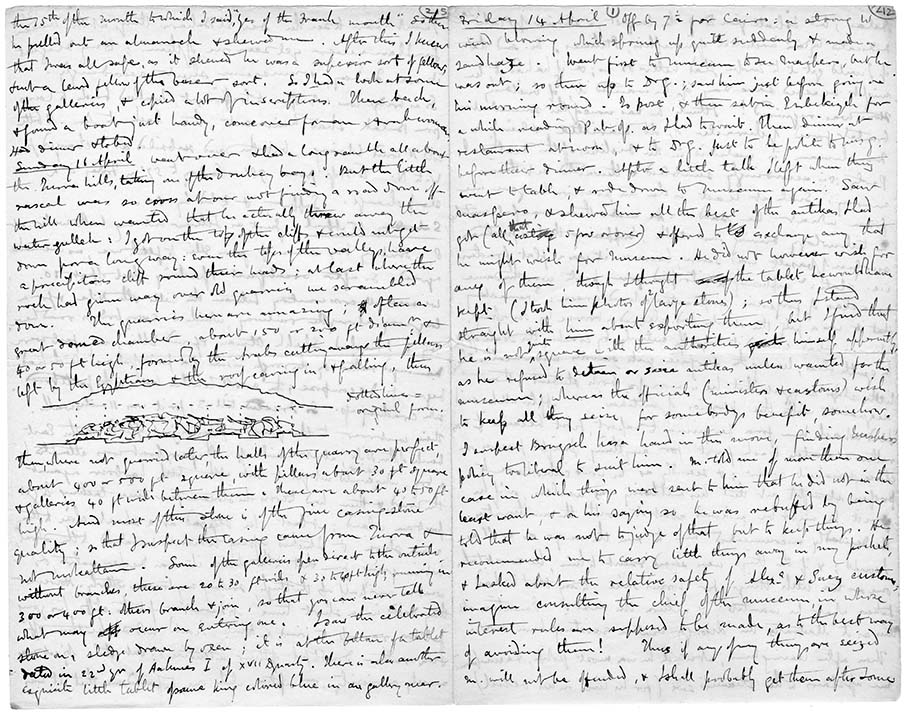 the 15th of the month to which I said "yes of the Frank month" so then
he pulled out an almanack & shewed me. After this I knew
that I was all safe, as it shewed he was a superior sort of fellow,
& not a lewd fellow of the baser sort. So I had a look at some
of the galleries & copied a lot of inscriptions. Then back,
& found a boat just handy, come over for one & rode home,
dinner & to bed
Sunday 16 April went over & had a long ramble all about
the Turra hills, taking one of the donkey boys. But the little
rascal was so cross at our not finding a road down off
the hill when wanted that he actually threw away the
water gulleh: I got on the top of the cliffs & could not get
down for a long way: even the tops of the valleys have
a precipitous cliff round their heads; at last where the
rock had given way over old quarries we scrambled
down. The quarries here are amazing; often a
great domed chamber, about 150 or 200 ft diamr. &
40 or 50 ft high formed by the Arabs cutting away the pillars
left by the Egyptians & the roof caving in & falling, thus
dotted lines =
original form.
then where not quarried later the halls of the quarry are perfect,
about 400 or 500 ft square, with pillars about 30 ft square
& galleries 40 ft wide between them. These are about 40 to 50 ft
high. And most of the stone is of the fine casing-stone
quality; so that I suspect the casing came from Turra &
not Mokattam. Some of the galleries open direct to the outside
without branches, these are 20 to 30 ft wide & 30 to 40 ft high, running in
300 or 400 ft. Others branch & join, so that you can never tell
what may occur on entering one. I saw the celebrated
stone on a sledge drawn by oxen; it is at the bottom of a tablet
dated in 22nd yr. of Aahmes I of XVII Dynasty. There is also another
exquisite little tablet of same king colored blue in a gallery near.
Friday 14 April (1) Off by 7 for Cairo: a strong W
wind blowing which sprung up quite suddenly & made a
sandhaze. I went first to museum to see Maspero, but he
was out; so then up to Dr G.; saw him just before going on
his morning round. To post, & then sat in Esbekiyeh for
a while reading Pub. Op. as I had to wait. Then dinner at
restaurant at noon, & to Dr G. just to be polite to Mrs G.
before their dinner. After a little talk I left when they
went to table, & rode down to museum again. Saw
Maspero, & shewed him all the best of the antikas I had
got (all that cost 5 fr or over) & offered to exchange any that
he might wish for museum. He did not however wish for
any of them though I thought the tablet he would have
kept (I took him photos of large stones); so then I stood
straight with him about exporting them, but I find that
he is not quite square with the authorities himself apparently,
as he refused to detain or seize antikas unless wanted for the
museum; whereas the officials (minister & customs) wish
to keep all they seize for somebody's benefit somehow.
I suspect Brugsch has a hand in this move, finding Maspero's
policy too liberal to suit him. M. told me of more than one
case in which things were sent to him that he did not in the
least want, & on his saying so he was rebuffed by being
told that he was not to judge of that, but to keep things. He
recommended me to carry little things away in my pockets,
& I asked about the relative safety of Alexa. & Suez customs,
imagine consulting the chief of the museum, in whose
interest rules are supposed to be made, as to the best way
of avoiding them! Thus if any of my things are seized
M. will not be offended, & I shall probably get them after some